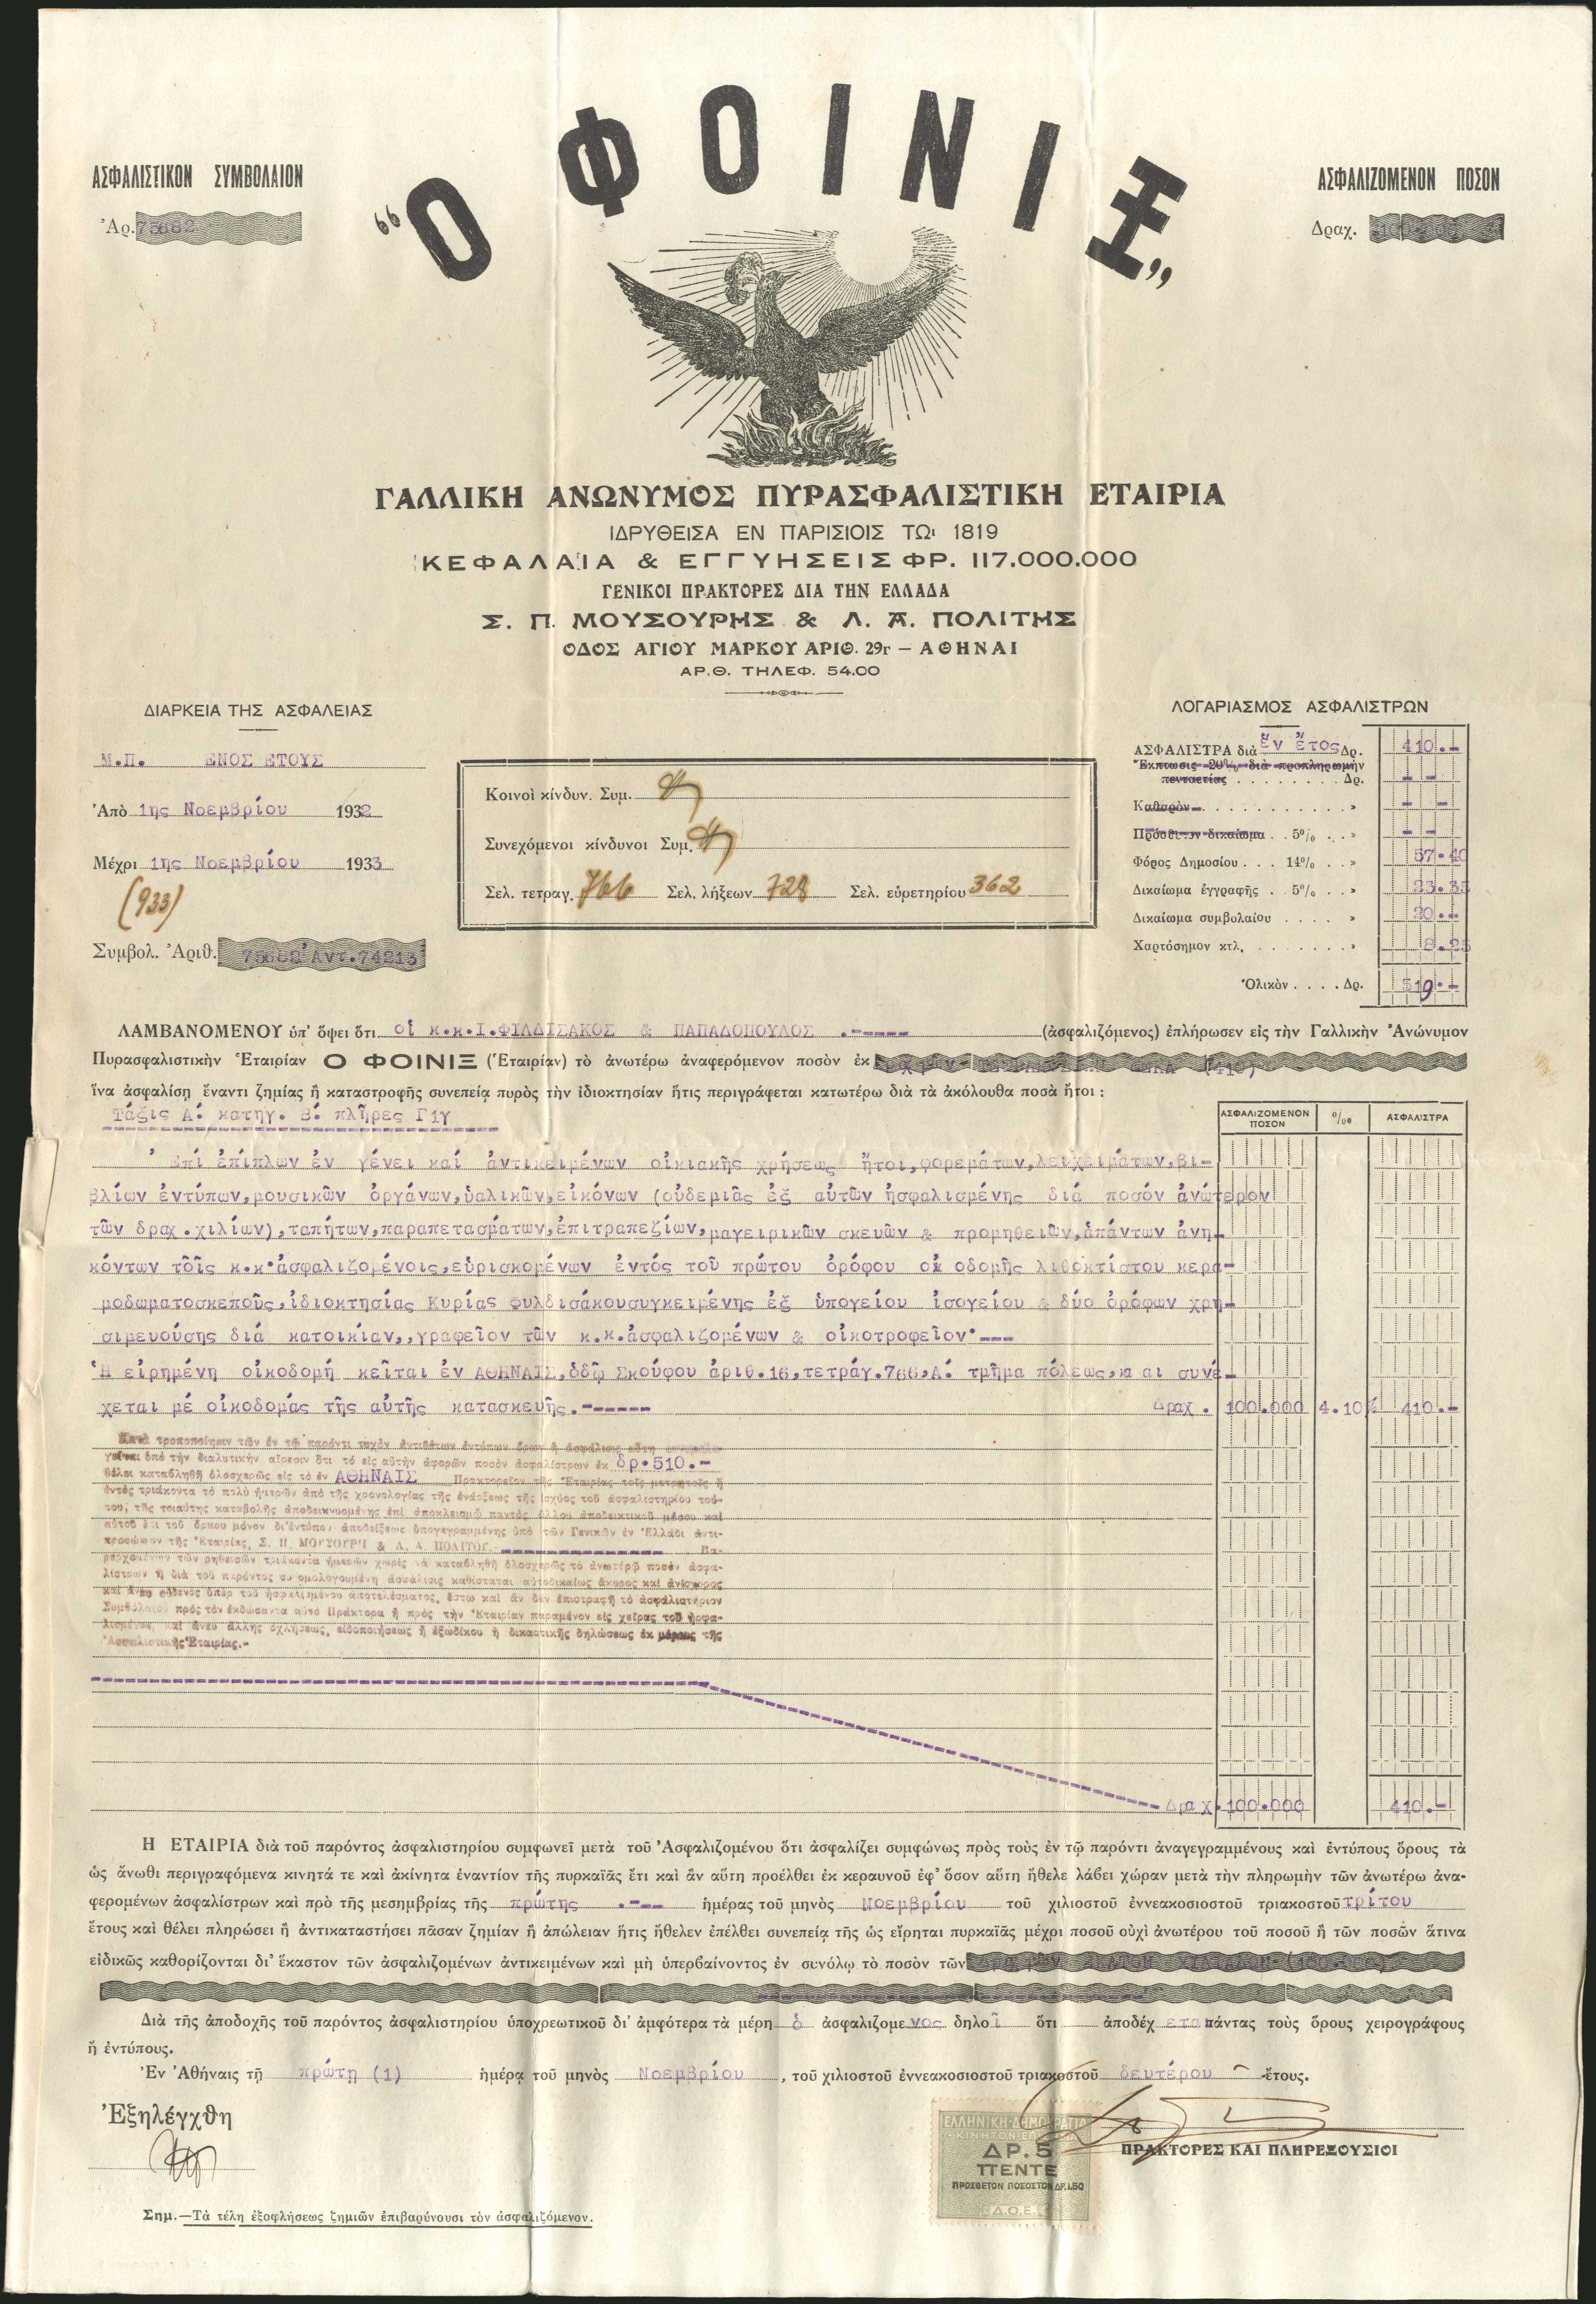 ΑΣΦΑΛΙΣΤΙΚΟΝ ΣΥΜΒΟΛΑΙΟΝ
Ἀρ. 75682
“Ο ΦΟΙΝΙΞ„
ΑΣΦΑΛΙΖΟΜΕΝΟΝ ΠΟΣΟΝ
Δραχ.
ΓΑΛΛΙΚΗ ΑΝΩΝΥΜΟΣ ΠΥΡΑΣΦΑΛΙΣΤΙΚΗ ΕΤΑΙΡΙΑ
ΙΔΡΥΘΕΙΣΑ ΕΝ ΠΑΡΙΣΙΟΙΣ ΤΩι 1819
ΚΕΦΑΛΑΙΑ & ΕΓΓΥΗΣΕΙΣ ΦΡ. 117.000.000
ΓΕΝΙΚΟΙ ΠΡΑΚΤΟΡΕΣ ΔΙΑ ΤΗΝ ΕΛΛΑΔΑ
Σ. Π. ΜΟΥΣΟΥΡΗΣ & Λ. Α. ΠΟΛΙΤΗΣ
ΟΔΟΣ ΑΓΙΟΥ ΜΑΡΚΟΥ ΑΡΙΘ. 29Γ — ΑΘΗΝΑΙ
ΑΡ.Θ. ΤΗΛΕΦ. 54.00
ΔΙΑΡΚΕΙΑ ΤΗΣ ΑΣΦΑΛΕΙΑΣ
Μ.Π. ΕΝΟΣ ΕΤΟΥΣ
Ἀπὸ 1ης Νοεμβρίου 1932
Μέχρι 1ης Νοεμβρίου 1933
(933)
Συμβολ. Ἀριθ. 75682 Ἀντ.74213
Κοινοὶ κίνδυν. Συμ.
Συνεχόμενοι κίνδυνοι Συμ.
Σελ. τετραγ. 766 Σελ. λήξεων 728 Σελ. εὑρετηρίου 362
ΛΟΓΑΡΙΑΣΜΟΣ ΑΣΦΑΛΙΣΤΡΩΝ
ΑΣΦΑΛΙΣΤΡΑ διὰ ἕν ἔτος Δρ. 410.-
Ἔκπτωσις 20% διὰ προπληρωμὴν
πενταετίας . . . . . . . Δρ. - -
Καθαρὸν . . . . . . . . . . » - -
Πρόσθετον δικαίωμα . . 5% . . » - -
Φόρος Δημοσίου . . . 14% . . » 57.40
Δικαίωμα ἐγγραφῆς . 5% . . » 23.35
Δικαίωμα συμβολαίου . . . . » 20.-
Χαρτόσημον κτλ. . . . . . . . » 8.25
Ὁλικὸν . . . . Δρ. 519.-
ΛΑΜΒΑΝΟΜΕΝΟΥ ὑπ' ὄψει ὅτι οἱ κ.κ.Ι.ΦΙΛΔΙΣΑΚΟΣ & ΠΑΠΑΔΟΠΟΥΛΟΣ .----- (ἀσφαλιζόμενος) ἐπλήρωσεν εἰς τὴν Γαλλικὴν Ἀνώνυμον
Πυρασφαλιστικὴν Ἑταιρίαν Ο ΦΟΙΝΙΞ (Ἑταιρίαν) τὸ ἀνωτέρω ἀναφερόμενον ποσὸν ἐκ (410)
ἵνα ἀσφαλίσῃ ἔναντι ζημίας ἢ καταστροφῆς συνεπείᾳ πυρὸς τὴν ἰδιοκτησίαν ἥτις περιγράφεται κατωτέρω διὰ τὰ ἀκόλουθα ποσὰ ἤτοι :
Τάξις Α΄. κατηγ. Β΄. πλῆρες Γ1γ
ΑΣΦΑΛΙΖΟΜΕΝΟΝ ΠΟΣΟΝ ‰ ΑΣΦΑΛΙΣΤΡΑ
Ἐπί ἐπίπλων ἐν γένει καί ἀντικειμένων οἰκιακῆς χρήσεως ἤτοι,φορεμάτων,λευχειμάτων,βι-
βλίων ἐντύπων,μουσικῶν ὀργάνων,ὑαλικῶν,εἰκόνων (οὐδεμιᾶς ἐξ αὐτῶν ἠσφαλισμένης διά ποσόν ἀνώτερον
τῶν δραχ.χιλίων),ταπήτων,παραπετασμάτων,ἐπιτραπεζίων,μαγειρικῶν σκευῶν & προμηθειῶν,ἁπάντων ἀνη-
κόντων τοῖς κ.κ.ἀσφαλιζομένοις,εὑρισκομένων ἐντός τοῦ πρώτου ὀρόφου οἰκοδομῆς λιθοκτίστου κερα-
μοδωματοσκεποῦς,ἰδιοκτησίας Κυρίας Φυλδισάκουσυγκειμένης ἐξ ὑπογείου ἰσογείου & δύο ὀρόφων χρη-
σιμευούσης διά κατοικίαν,,γραφεῖον τῶν κ.κ.ἀσφαλιζομένων & οἰκοτροφεῖον.---
Ἡ εἰρημένη οἰκοδομή κεῖται ἐν ΑΘΗΝΑΙΣ,ὁδῷ Σκούφου ἀριθ.16,τετράγ.766,Α΄. τμῆμα πόλεως,κ αι συνέ-
χεται μέ οἰκοδομάς τῆς αὐτῆς κατασκευῆς.------ Δραχ. 100.000 4.10% 410.-
Κατὰ τροποποίησιν τῶν ἐν τῷ παρόντι τυχὸν ἀντιθέτων ἐντύπων ὅρων ἡ ἀσφάλισις αὕτη
γεῖται ὑπὸ τὴν διαλυτικὴν αἵρεσιν ὅτι τὸ εἰς αὐτὴν ἀφορῶν ποσὸν ἀσφαλίστρων ἐκ δρ.510.-
θέλει καταβληθῆ ὁλοσχερῶς εἰς τὸ ἐν ΑΘΗΝΑΙΣ Πρακτορεῖον τῆς Ἑταιρίας τοῖς μετρητοῖς ἢ
ἐντὸς τριάκοντα τὸ πολὺ ἡμερῶν ἀπὸ τῆς χρονολογίας τῆς ἐνάρξεως τῆς ἰσχύος τοῦ ἀσφαλιστηρίου τού-
του, τῆς τοιαύτης καταβολῆς ἀποδεικνυομένης ἐπὶ ἀποκλεισμῷ παντὸς ἄλλου ἀποδεικτικοῦ μέσου καὶ
αὐτοῦ ἔτι τοῦ ὅρκου μόνον δι' ἐντύπου ἀποδείξεως ὑπογεγραμμένης ὑπὸ τῶν Γενικῶν ἐν Ἑλλάδι ἀντι-
προσώπων τῆς Ἑταιρίας, Σ. Π. ΜΟΥΣΟΥΡΗ & Λ. Α. ΠΟΛΙΤΟΥ. Πα-
ρερχομένων τῶν ρηθεισῶν τριάκοντα ἡμερῶν χωρὶς νὰ καταβληθῇ ὁλοσχερῶς τὸ ἀνωτέρω ποσὸν ἀσφα-
λίστρων ἡ διὰ τοῦ παρόντος συνομολογουμένη ἀσφάλισις καθίσταται αὐτοδικαίως ἄκυρος καὶ ἀνίσχυρος
καὶ ἄνευ οὐδενὸς ὑπὲρ τοῦ ἠσφαλισμένου ἀποτελέσματος, ἔστω καὶ ἂν δὲν ἐπιστραφῇ τὸ ἀσφαλιστήριον
Συμβόλαιον πρὸς τὸν ἐκδώσαντα αὐτὸ Πράκτορα ἢ πρὸς τὴν Ἑταιρίαν παραμένον εἰς χεῖρας τοῦ ἠσφα-
λισμένου, καὶ ἄνευ ἄλλης ὀχλήσεως, εἰδοποιήσεως ἢ ἐξωδίκου ἢ δικαστικῆς δηλώσεως ἐκ μέρους τῆς
Ἀσφαλιστικῆς Ἑταιρίας.-
Δραχ. 100.000 410.-
Η ΕΤΑΙΡΙΑ διὰ τοῦ παρόντος ἀσφαλιστηρίου συμφωνεῖ μετὰ τοῦ Ἀσφαλιζομένου ὅτι ἀσφαλίζει συμφώνως πρὸς τοὺς ἐν τῷ παρόντι ἀναγεγραμμένους καὶ ἐντύπους ὅρους τὰ
ὡς ἄνωθι περιγραφόμενα κινητά τε καὶ ἀκίνητα ἐναντίον τῆς πυρκαϊᾶς ἔτι καὶ ἂν αὕτη προέλθει ἐκ κεραυνοῦ ἐφ' ὅσον αὕτη ἤθελε λάβει χώραν μετὰ τὴν πληρωμὴν τῶν ἀνωτέρω ἀνα-
φερομένων ἀσφαλίστρων καὶ πρὸ τῆς μεσημβρίας τῆς πρώτης .--- ἡμέρας τοῦ μηνὸς Νοεμβρίου τοῦ χιλιοστοῦ ἐννεακοσιοστοῦ τριακοστοῦ τρίτου
ἔτους καὶ θέλει πληρώσει ἢ ἀντικαταστήσει πᾶσαν ζημίαν ἢ ἀπώλειαν ἥτις ἤθελεν ἐπέλθει συνεπείᾳ τῆς ὡς εἴρηται πυρκαϊᾶς μέχρι ποσοῦ οὐχὶ ἀνωτέρου τοῦ ποσοῦ ἢ τῶν ποσῶν ἅτινα
εἰδικῶς καθορίζονται δι' ἕκαστον τῶν ἀσφαλιζομένων ἀντικειμένων καὶ μὴ ὑπερβαίνοντος ἐν συνόλῳ τὸ ποσὸν τῶν δραχμῶν ΕΚΑΤΟΝ ΧΙΛΙΑΔΩΝ (100.000)
Διὰ τῆς ἀποδοχῆς τοῦ παρόντος ἀσφαλιστηρίου ὑποχρεωτικοῦ δι' ἀμφότερα τὰ μέρη ὁ ἀσφαλιζομενος δηλοῖ ὅτι ἀποδέχεται πάντας τοὺς ὅρους χειρογράφους
ἢ ἐντύπους.
Ἐν Ἀθήναις τῇ πρώτῃ (1) ἡμέρᾳ τοῦ μηνὸς Νοεμβρίου , τοῦ χιλιοστοῦ ἐννεακοσιοστοῦ τριακοστοῦ δευτέρου ἔτους.
Ἐξηλέγχθη
ΕΛΛΗΝΙΚΗ ΔΗΜΟΚΡΑΤΙΑ
ΚΙΝΗΤΟΝ ΕΠΙΣΗΜΑ
ΔΡ. 5
ΠΕΝΤΕ
ΠΡΟΣΘΕΤΟΝ ΠΟΣΟΣΤΟΝ ΔΡ.1.50
Δ.Ο.Ε.
ΠΡΑΚΤΟΡΕΣ ΚΑΙ ΠΛΗΡΕΞΟΥΣΙΟΙ
Σημ.—Τὰ τέλη ἐξοφλήσεως ζημιῶν ἐπιβαρύνουσι τὸν ἀσφαλιζόμενον.